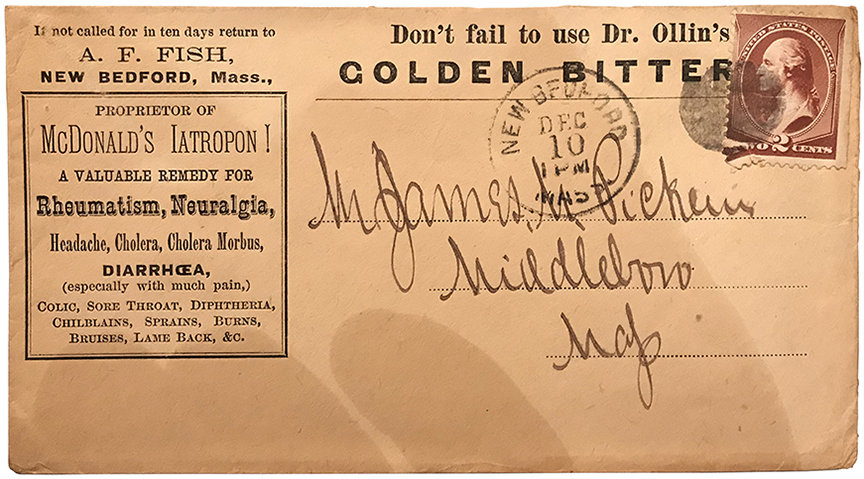 If not called for in ten days return to
A. F. FISH,
NEW BEDFORD, Mass.,
PROPRIETOR OF
MCDONALD'S IATROPON!
A VALUABLE REMEDY FOR
Rheumatism, Neuralgia,
Headache, Cholera, Cholera Morbus,
DIARRHŒA,
(especially with much pain,)
COLIC, SORE THROAT, DIPHTHERIA,
CHILBLAINS, SPRAINS, BURNS,
BRUISES, LAME BACK, &C.
Don't fail to use Dr. Ollin's
GOLDEN BITTER
UNITED STATES POSTAGE
TWO 2 CENTS
NEW BEDFORD
DEC
10
1 PM
MASS
Mr James. M. Pickens
Middleboro
Mass